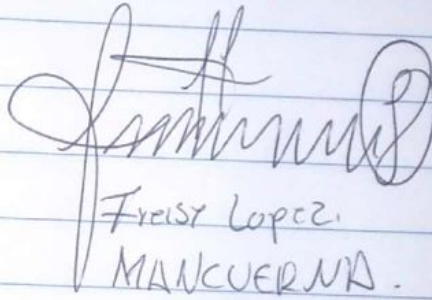 Freisy Lopez.
MANCUERNA.